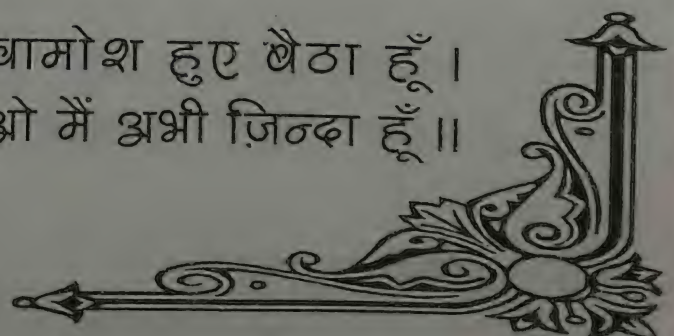 हुए बैठा हूँ।
मैं अभी ज़िन्दा हूँ॥